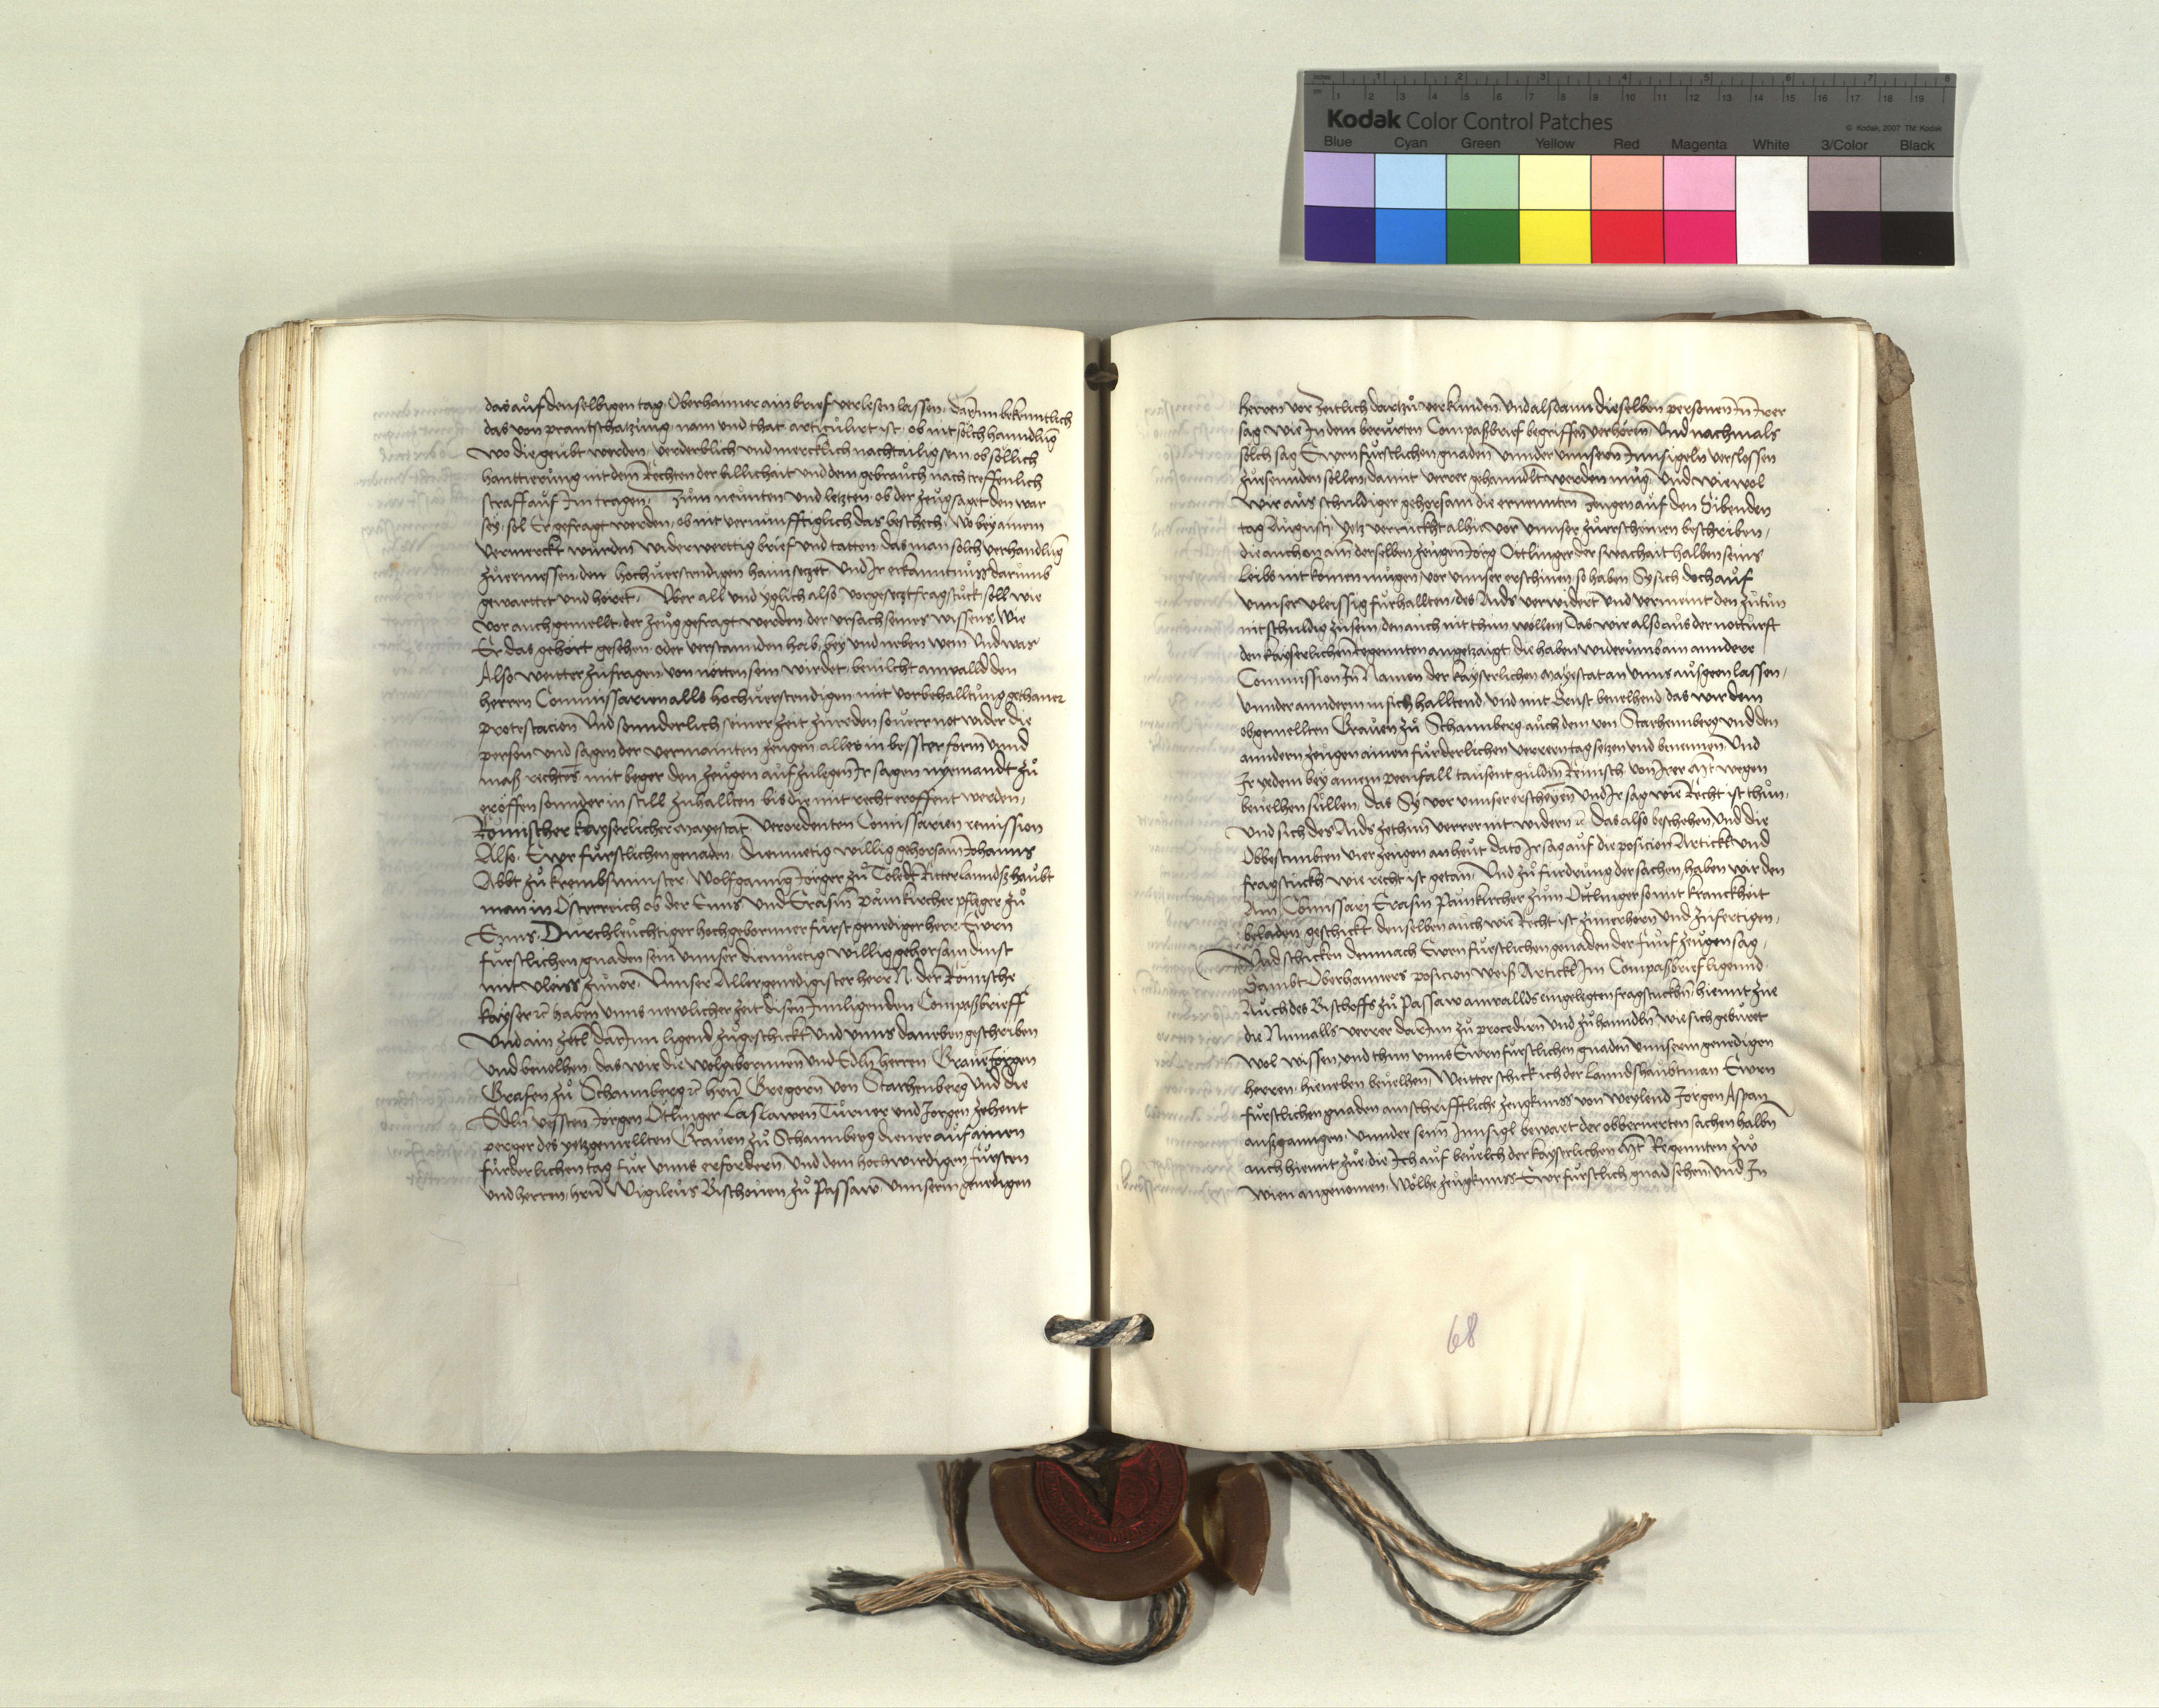 inches 1 2 3 4 5 6 7 8
cm 1 2 3 4 5 6 7 8 9 10 11 12 13 14 15 16 17 18 19
Kodak Color Control Patches © Kodak, 2007 TM: Kodak
Blue Cyan Green Yellow Red Magenta White 3/Color Black
das auf denselbigen tag Oberhaimer ain brief verlesen lassen darInn bekenntlich
das von prantschatzung nam und that articulirt ist ob nit solch hanndlung
wo die geubt werden verderblich und mercklich nachtailig sein ob sollich
hanttierung nit dem Rechten der billichait und dem gebrauch nach treffenlich
straff auf Im tragen Zum neunten und letzten ob der zeug saget den war
sey sol Er gefragt werden ob nit vernunfftiglich das beschech wo bey ainem
vermerckt wurden widerwerttig brief und tatten das man solch verhandlung
zuermessen den hochverstendigen haim setzet Und Ir erkanntnuss darumb
gewarttet und höret Uber all und yglich also vorgesetzt fragstuck soll wie
vor auch gemellt der zeug gefragt werden der ursach seines wissens wie
Er das gehört gesehen oder verstannden hab bey und neben wem Und was
Also weitter zufragen von nötten sein wirdet bevilcht anwalld den
herren Commissarien alls hochverstendigen mit vorbehalltung gethaner
protestacion Und sonnderlich seiner zeit zureden sover not wider die
person und sagen der vermainten zeugen alles in besster form unnd
mass rechtens mit beger den zeugen aufzulegen Ir sagen nyemandt zu
eröffen sonnder in still zuhallten bis die mit recht eroffent werden
Römischer kayserlicher mayestat verordenten Comissarien remission
Also Ewr furstlichen genaden diemuetig willig gehorsam Johanns
Abbt zu krembsmunster Wolfganng Jörger zu Tolet Ritter lanndshaubt
man in Osterreich ob der Enns und Erasm Paumkircher pfleger zu
Enns Durchleuchtiger hochgebornner furst genediger herr Ewrn
furstlichen gnaden sein unnser diemuetig willig gehorsam dinst
mit vleiss zuvor Unnser Allergenedigister herr N der Römische
kayser rc haben unns newlicher zeit disen Innligenden Compassbrieff
Und ain zetl darInn ligend zugeschickt und unns daneben geschriben
und bevolhen das wir die wolgebornnen und Edln herren Grave Jörgen
Grafen zu Schaunberg rc herrn Gregorn von Starhenberg und die
Edln vessten Jörgen Otlinger Laslawen Turner und Jorgen zehent
perger des yetzgemellten Graven zu Schaunberg diener auf ainen
furderlichen tag fur unns erfordern und dem hochwirdigen fursten
und herren herrn Wigileus Bischoven zu Passaw unnserm genedigen
herren vor zeitlich dartzu verkunden und alsdann dieselben personen In Irer
sag wie In dem berurten Compassbrief begriffen verhören Und nachmals
solch sag Ewrn furstlichen gnaden unnder unnsern Innsigeln verslossen
zuesennden sollen damit verrer gehanndlt werden mug Und wiewol
wir aus schuldiger gehorsam die ernennten zeugen auf den Sibenden
tag Augusti yetz verruckht alhie vor unnser zuerscheinen beschriben
die auch on ain derselben zeugen Jörg Ottlinger der swachait halben seins
leibs nit komen mugen vor unnser erschinen so haben Sy sich doch auf
unnser vleissig furhallten des Aids verwidert und vermeint den zutun
nit schuldig zusein den auch nit thun wollen Das wir also aus der notturft
den kayserlichen Regennten angetzaigt die haben widerumb ain anndere
Commission In Namen der kayserlichen mayestat an unns ausgeen lassen
unnder annderm in sich halltend und mit Ernst bevelhend das wir dem
obgemellten Graven zu Schaunberg auch dem von Starhemberg und den
anndern zeugen ainen furderlichen verrern tag setzen und benennen Und
Ir yedem bey ainem peenfall tausent guldin Reinisch von Irer Mt wegen
bevelhen sullen das Sy vor unnser erscheinen und Ir sag wie Recht ist thun
und sich des Aids zethun verrer nit widern rc Das also beschehen und die
Obbestimbten vier zeugen an heut dato Ir sag auf die posicion Artickl und
fragstuckh wie recht ist getan Und zu furdrung der sachen haben wir den
Ain Comissari Erasm Paumkircher zum Otlinger so mit kranckheit
beladen geschickt denselben auch wie Recht ist zuverhorn und zufertigen
Und schicken demnach Ewrn furstlichen genaden der funf zeugen sag
Sambt Oberhaimers posicion weiss Artickl Im Compassbrief ligennd
Auch des Bischoffs zu Passaw anwallds eingelegten fragstuckhn hiemit zue
die Nunmalls verrer darInn zu procedirn und zuhanndln wie sich geburet
wol wissen und thun unns Ewrn furstlichen gnaden unnserm genedigen
herren hieneben bevelhen Weitter schick ich der lanndshaubtman Ewrn
furstlichen gnaden ain schrifftliche zeugknuss von weylend Jörgen Aspan
ausganngen unnder seinem Innsigl bewart der obberuerten sachen halbn
auch hiemit zue die Ich auf bevelch der kayserlichen Mt Regennten zw
Wien angenomen Wölhe zeugknuss Ewr furstlich gnad sehen und In
68